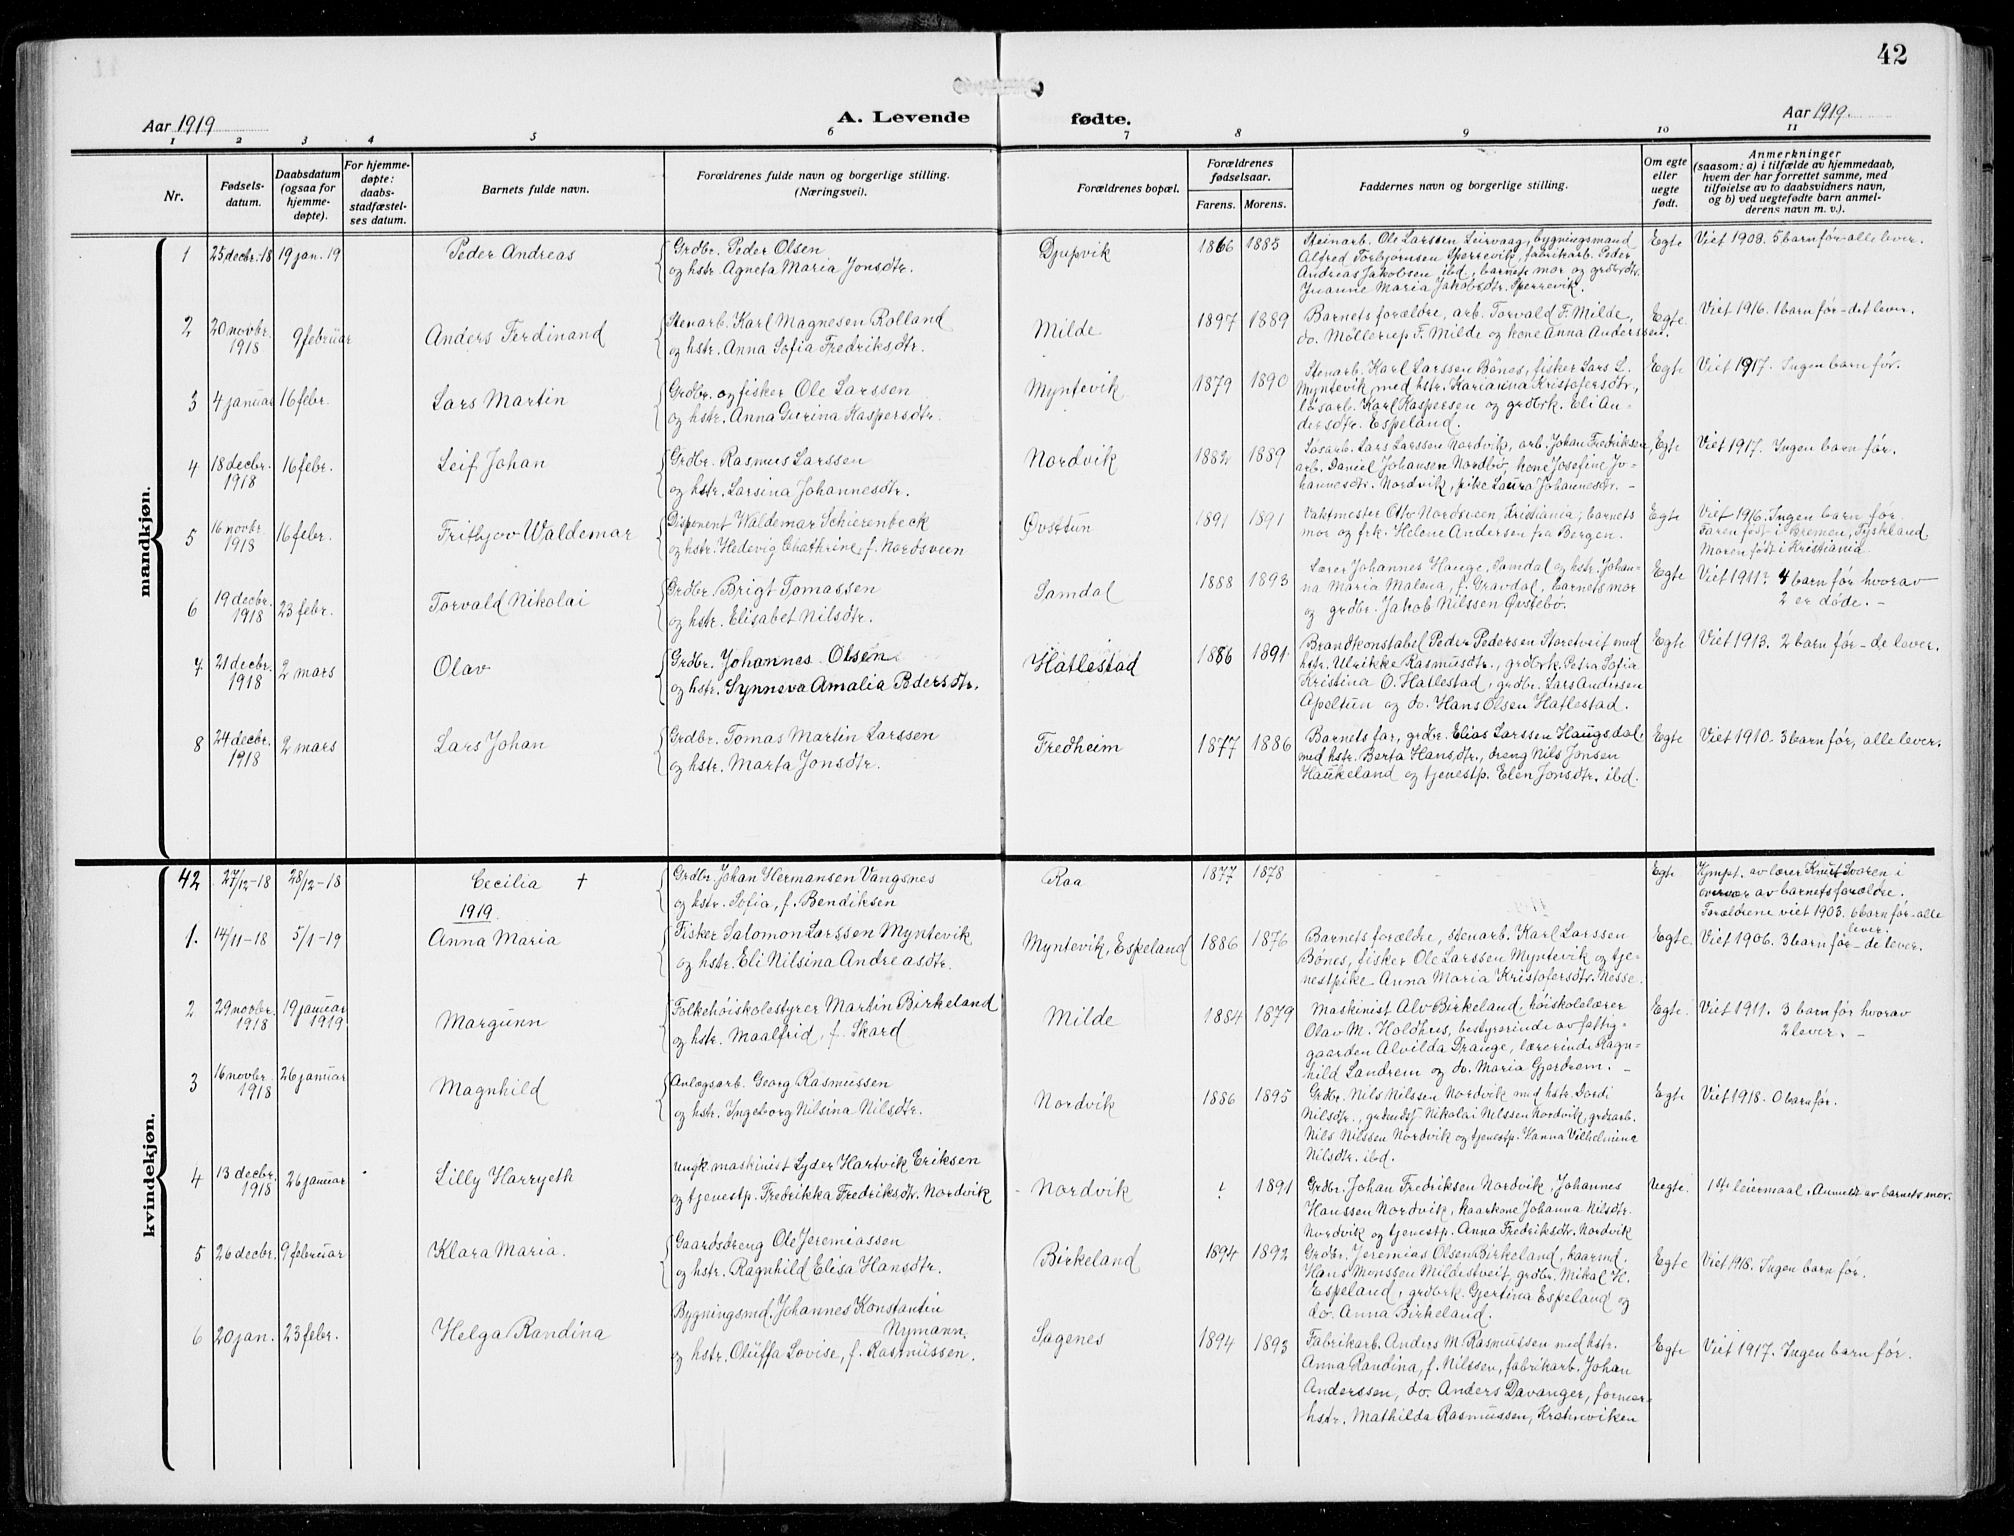 42
Aar 1919
A. Levende fødte.
Aar 1919.
1 2 3 4 5 6 7 8 9 10 11
Nr.
Fødsels-
datum.
Daabsdatum
(ogsaa for
hjemme-
døpte).
For hjemme-
døpte:
daabs-
stadfæstel-
ses datum.
Barnets fulde navn.
Forældrenes fulde navn og borgerlige stilling.
(Næringsvei).
Forældrenes bopæl.
Forældrenes
fødselsaar.
Farens. Morens.
Faddernes navn og borgerlige stilling.
Om egte
eller
uegte
født.
Anmerkninger
(saasom: a) i tilfælde av hjemmedaab,
hvem der har forrettet samme, med
tilføielse av to daabsvidners navn,
og b) ved uegtefødte barn anmel-
derens navn m. v.).
mandkjøn.
1 25 decbr. 18 19 jan. 19 Peder Andreas
Grdbr. Peder Olsen
og hstr. Agneta Maria Jonsdtr.
Djupvik 1866 1885
Steinarb. Ole Larssen Leirvaag, bygningsmand
Alfred Torbjørnsen Sperrevik, fabrikarb. Peder
Andreas Jakobsen ibd, barnets mor og grdbrdtr.
Maria Jakobsdtr. Sperrevik.
Egte Viet 1908. 5 barn før - alle lever.
2 20 novbr. 1918 9 februar Anders Ferdinand
Stenarb. Karl Magnesen Rolland
og hstr. Anna Sofia Fredriksdtr.
Milde 1897 1889
Barnets forældre, arb. Torvald F. Milde,
do. Møllerup F. Milde og kone Anna Anderssen.
Egte. Viet 1916. 1 barn før - det lever.
3 4 januar 16 febr. Lars Martin
Grdbr. og fisker Ole Larssen
og hstr. Anna Gurina Kaspersdtr.
Myntevik 1879 1890
Stenarb. Karl Larssen Bönes, fisker Lars L.
Myntevik med hstr. Karianna Kristofersdtr,
løsarb. Karl Kaspersen og grdbrk. Eli An-
dersdtr. Espeland.
Egte Viet 1917. Ingen barn før.
4 18 decbr. 1918 16 febr. Leif Johan
Grdbr. Rasmus Larssen
og hstr. Larsina Johannesdtr.
Nordvik 1882 1889
Løsarb. Lars Larssen Nordvik, arb. Johan Fredriksen,
arb. Daniel Johansen Nordbø, kone Josefine Jo-
hannesdtr. Nordvik, pike Laura Johannesdtr. -
Egte Viet 1917. Ingen barn før.
5 16 novbr 1918 16 febr. Fritbjov Waldemar
Disponent Waldemar Schierenbeck
og hstr. Hedevig Chathrine, f. Nordsveen
Øvsttun 1891 1891
Vaktmester Otto Nordsveen, Kristiania; barnets
mor og frk. Helene Andersen fra Bergen.
Egte Viet 1916. Ingen barn før.
Faren født i Bremen, Tyskland
Moren født i Kristiania
6 19 decbr. 1918 23 febr. Torvald Nikolai
Grdbr. Brigt Tomassen
og hstr. Elisabet Nilsdtr.
Samdal 1888 1893
Lærer Johannes Hauge, Samdal og hstr. Johan-
na Maria Malena, f. Gravdal, barnets mor
og grdbr. Jakob Nilssen Øvstebø.
Egte Viet 1911. 4 barn før hvorav
2 er døde. -
7 21 decbr. 1918 2 mars Olav
Grdbr. Johannes Olsen
og hstr. Synneva Amalia Pedersdtr.
Hatlestad 1886 1891
Brandkonstabel Peder Pedersen Storetveit med
hstr. Ulrikke Rasmusdtr., grdbrk. Petra Sofia
Kristina O. Hatlestad, grdbr. Lars Andersen
Apeltun og do. Hans Olsen Hatlestad.
Egte Viet 1913. 2 barn før - de lever.
8 24 decbr. 1918 2 mars Lars Johan
Grdbr. Tomas Martin Larssen
og hstr. Marta Jonsdtr.
Fredheim 1877 1886
Barnets far, grdbr. Elias Larssen Haugsdal
med hstr. Berta Hansdtr., dreng Nils Jonsen
Haukeland og tjenestp. Elen Jonsdtr. ibd.
Egte Viet 1910. 3 barn før, alle lever.
kvindekjøn.
42 27/12-18 28/12-18 Cecilia †
Grdbr. Johan Hermansen Vangsnes
og hstr. Sofia, f. Bendiksen
Raa 1877 1878
Egte Hjmpt. av lærer Knut Svoren i
overvær av barnets forældre.
Forældrene viet 1903. 6 barn før - alle
lever.
1919
1. 14/11-18 5/1-19 Anna Maria
Fisker Salomon Larssen Myntevik
og hstr. Eli Nilsina Andreasdtr.
Myntevik, Espeland 1886 1876
Barnets forældre, stenarb. Karl Larssen
Bønes, fisker Ole Larssen Myntevik og tje-
nestpike Anna Maria Kristofersdtr. Nesse.
Egte. Viet 1906. 3 barn før - de lever.
2 29 novbr. 1918 19 januar 1919 Margunn
Folkehøiskolestyrer Martin Birkeland
og hstr. Maalfrid, f. Skard
Milde 1884 1879
Maskinist Alv Birkeland, høiskolelærer
Olav M. Holdhus, bestyrerinde av fattig-
gaarden Alvilda Drange, lærerinde Ragn-
hild Landrem og do. Maria Gjerdrem. -
Egte. Viet 1911. 3 barn før hvorav
2 lever. -
3 16 novbr. 1918 26 januar Magnhild
Anlægsarb. Georg Rasmussen
og hstr. Ingeborg Nilsina Nilsdtr.
Nordvik 1886 1895
Grdbr. Nils Nilssen Nordvik med hstr. Dordi
Nilsdtr., Nikolai Nilssen Nordvik, grdsarb.
Nils Nilssen Nordvik og tjenestp. Hanna Vilhelmina
Nilsdtr. ibd.
Egte Viet 1918. 0 barn før.
4 13 decbr. 1918 26 januar Lilly Harryeth
Ungk. maskinist Lyder Hartvik Eriksen
og tjenestp. Fredrikka Fredriksdtr. Nordvik
Nordvik ? 1891
Grdbr. Johan Fredriksen Nordvik, Johannes
Hanssen Nordvik, kaarkone Johanna Nilsdtr.
Nordvik og tjenestp. Anna Fredriksdtr. Nordvik
Uegte. 1ste leiermaal. Anmeldt av barnets mor.
5 26 decbr. 9 februar Klara Maria.
Gaardsdreng Ole Jeremiassen
og hstr. Ragnhild Elisa Hansdtr.
Birkeland 1894 1892
Grdbr. Jeremias Olsen Birkeland, kaarmd.
Hans Monssen Mildestveit, grdbr. Mikal H.
Espeland, grdbrk. Gjertina Espeland og
do. Anna Birkeland.
Egte Viet 1918. Ingen barn før.
6 20 jan. 23 febr. Helga Randina
Bygningsmd. Johannes Konstantin
Nymann
og hstr. Oluffa Lovise, f. Rasmussen.
Sagenes 1894 1893
Fabrikarb. Anders M. Rasmussen med hstr.
Anna Randina, f. Nilssen, fabrikarb. Johan
Anderssen, do. Anders Davanger, former
hstr. Mathilda Rasmussen, Krohnviken
Egte Viet 1917. Ingen barn før.